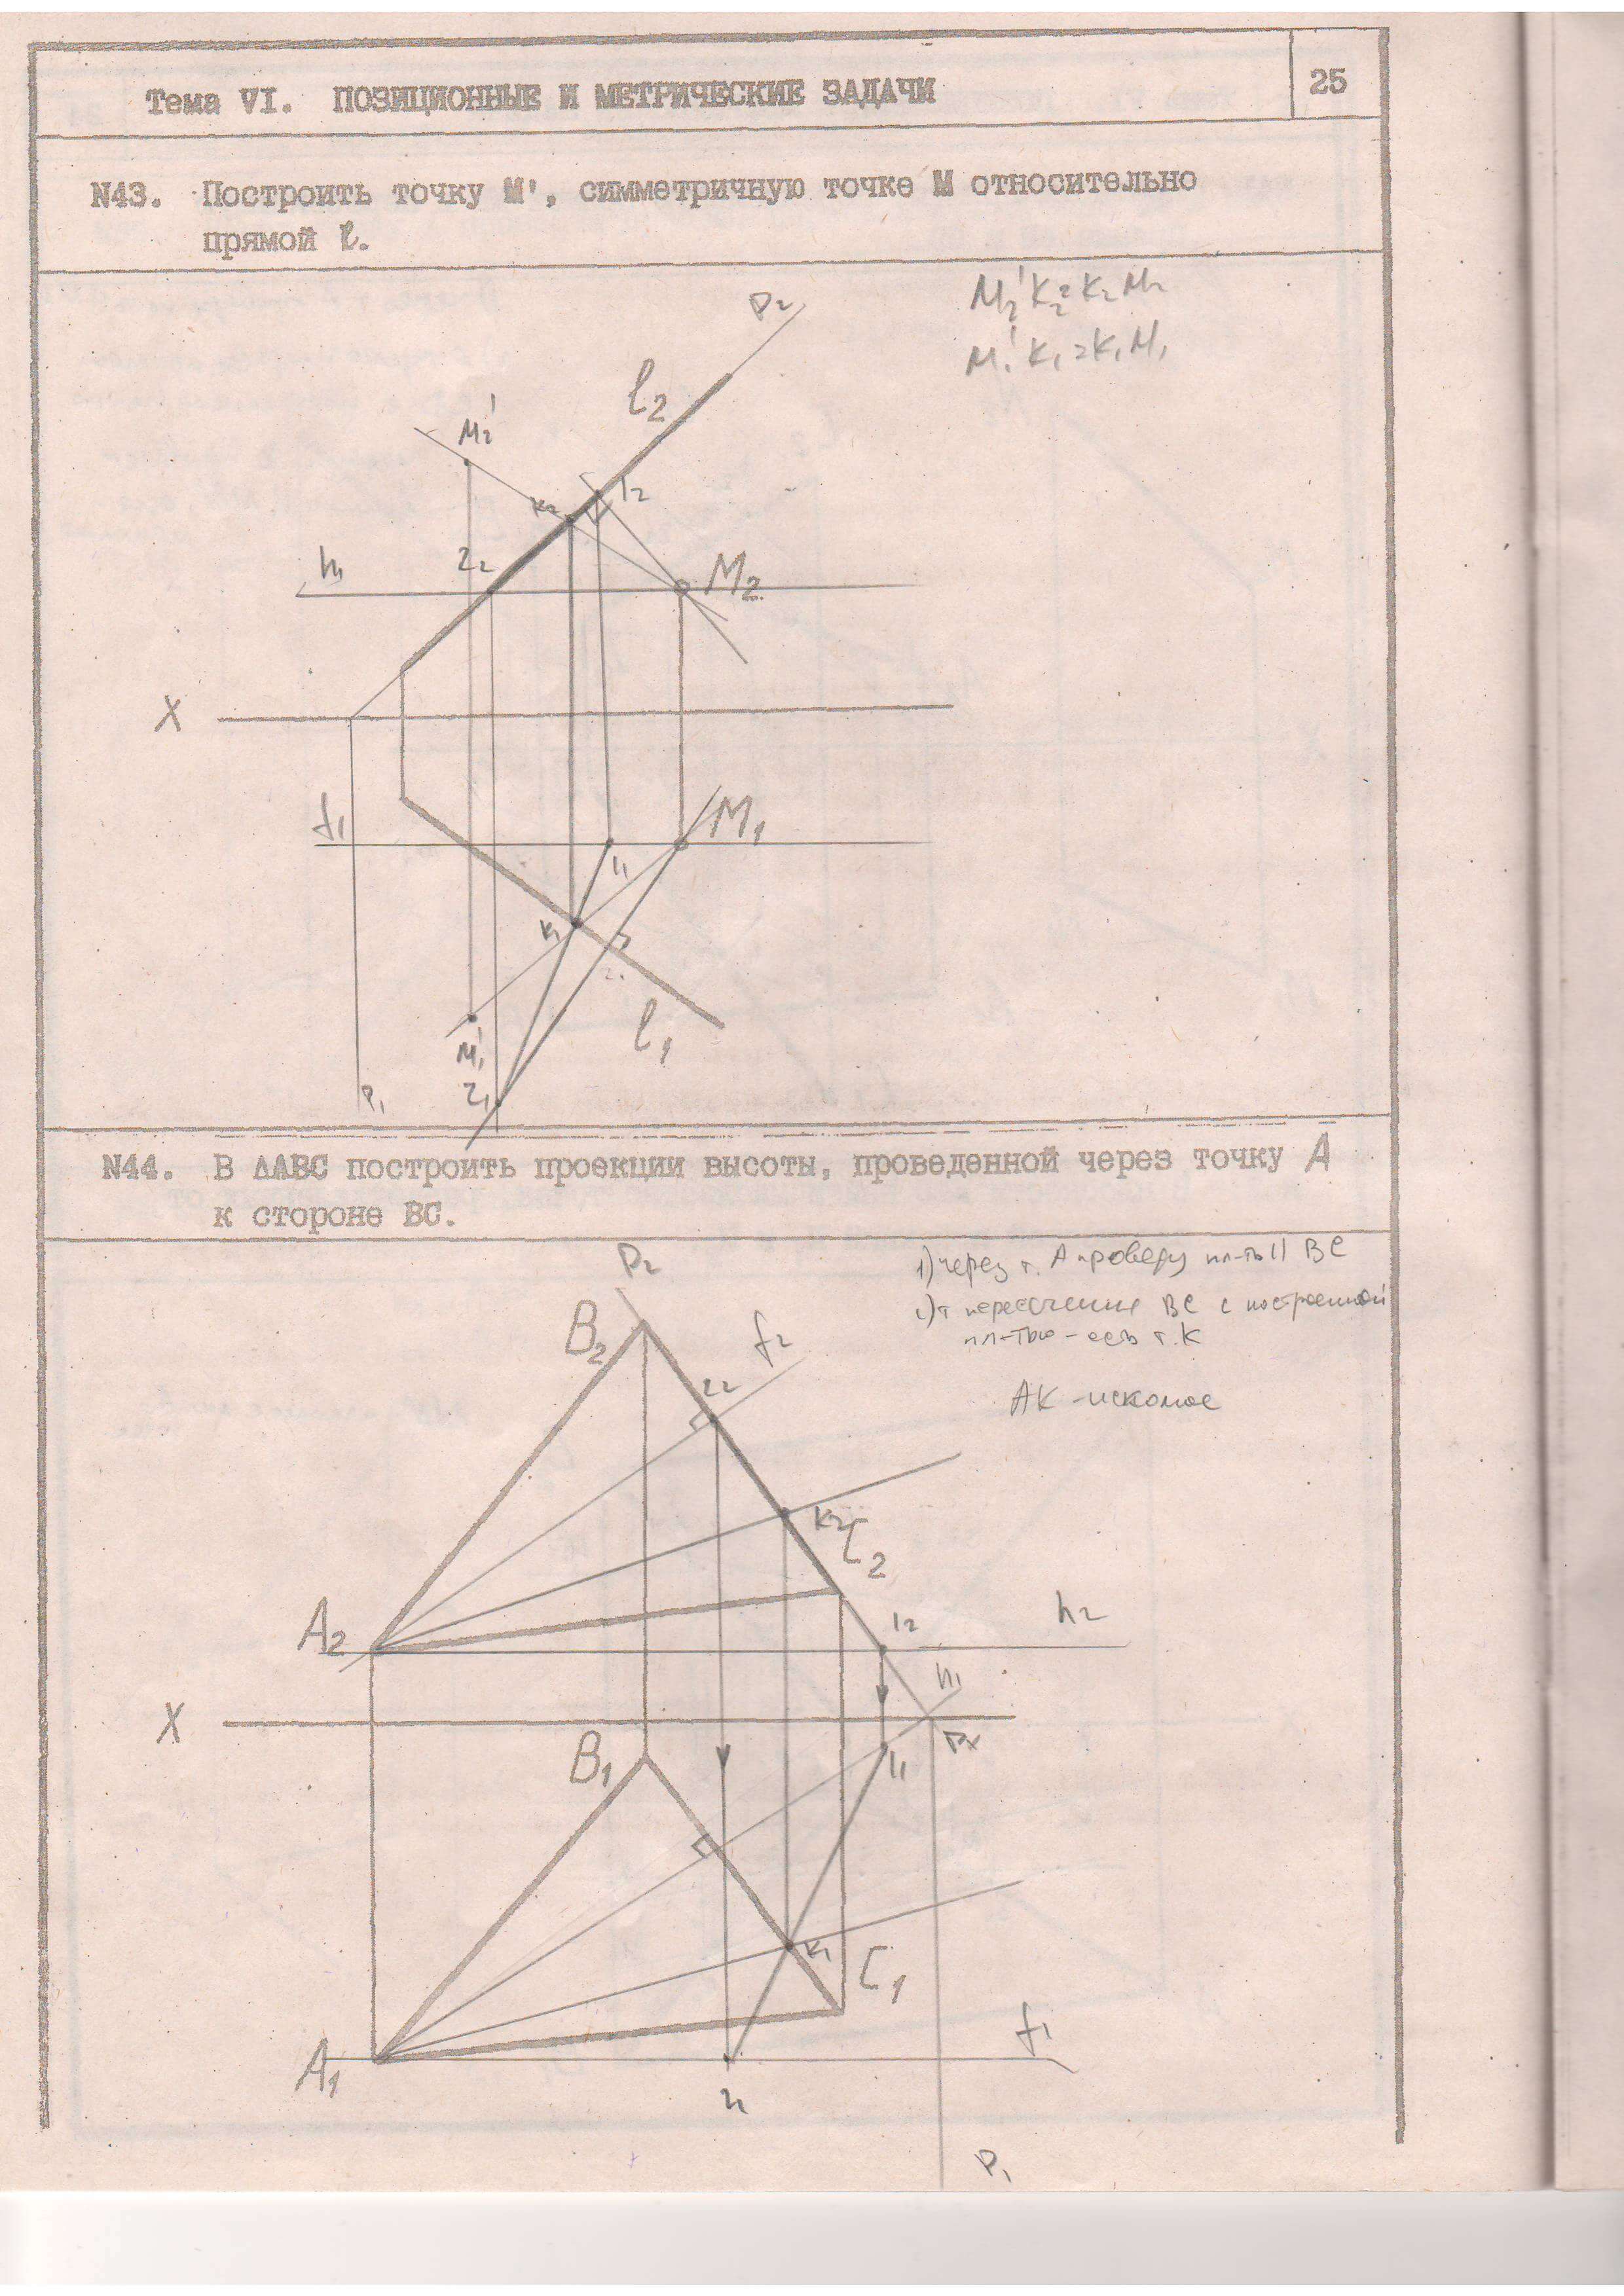 Тема VI. ПОЗИЦИОННЫЕ И МЕТРИЧЕСКИЕ ЗАДАЧИ
25
N43. Построить точку М', симметричную точке М относительно
прямой ℓ.
M₂'K₂=K₂M₂
M₁'K₁=K₁M₁
P₂
ℓ₂
M₂'
K₂
1₂
2₂
h₁
M₂
X
f₁
M₁
1₁
K₁
ℓ₁
M₁'
2₁
P₁
N44. В ΔАВС построить проекции высоты, проведенной через точку А
к стороне ВС.
1) через т. А проведу пл-ть || ВС
2) т пересечения ВС с построенной
пл-тью - есть т. К
АК - искомое
P₂
B₂
f₂
2₂
K₂
C₂
A₂
1₂
h₂
h₁
X
Pₓ
B₁
1₁
K₁
C₁
A₁
f₁
2₁
P₁